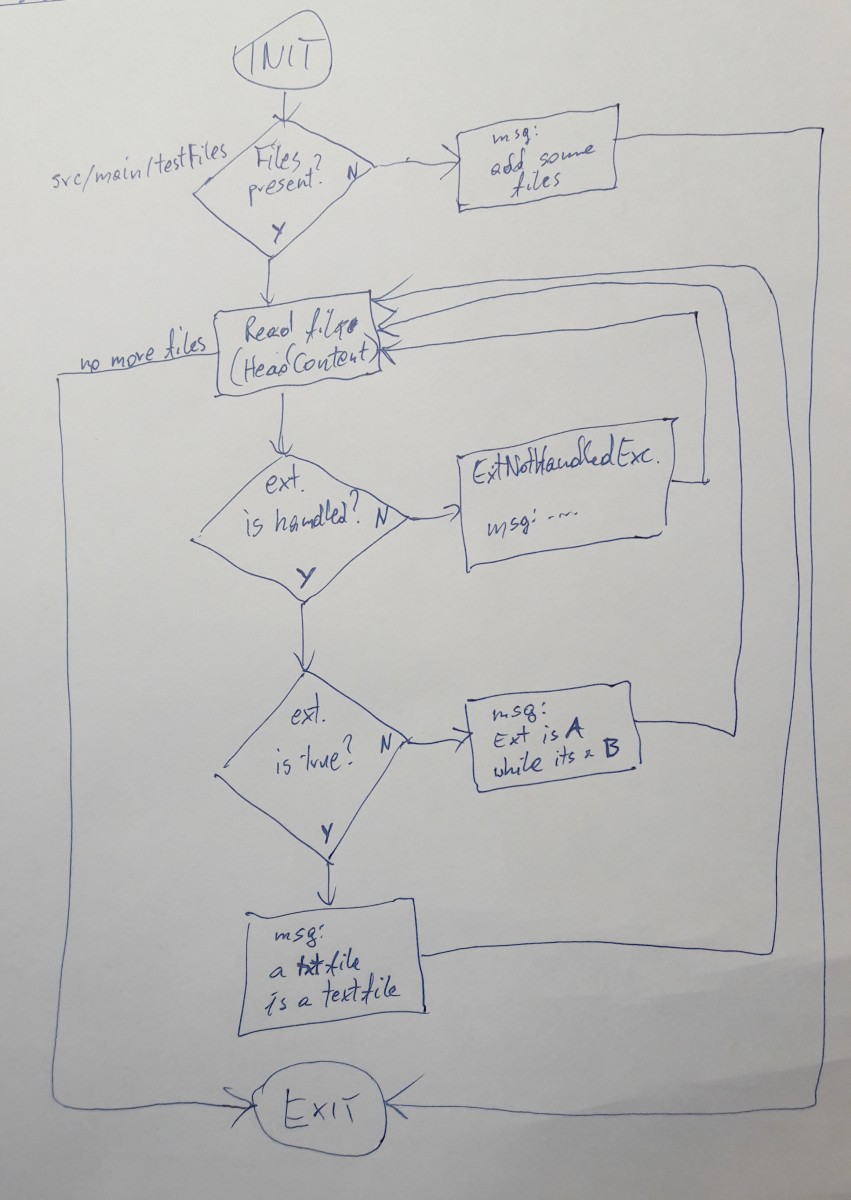 INIT
src/main/testFiles
Files
present?
N
Y
msg:
add some
files
no more files
Read file
(HeadContent)
ext.
is handled?
N
Y
ExtNotHandledExc.
msg: ....
ext.
is true?
N
Y
msg:
Ext is A
while its a B
msg:
a txt file
is a text file
EXIT